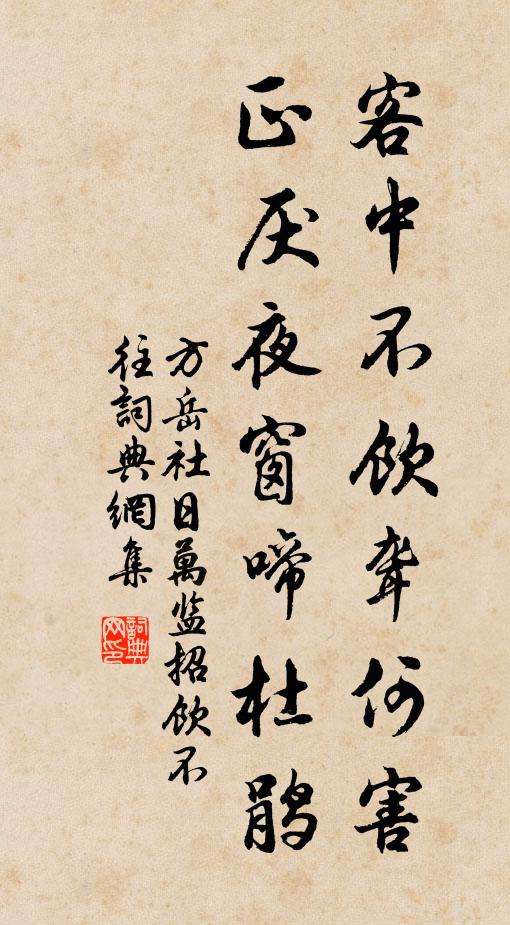 客中不饮聋何害
正厌夜窗啼杜鹃
方岳社日万监招饮不
往词典網集
詞典网印